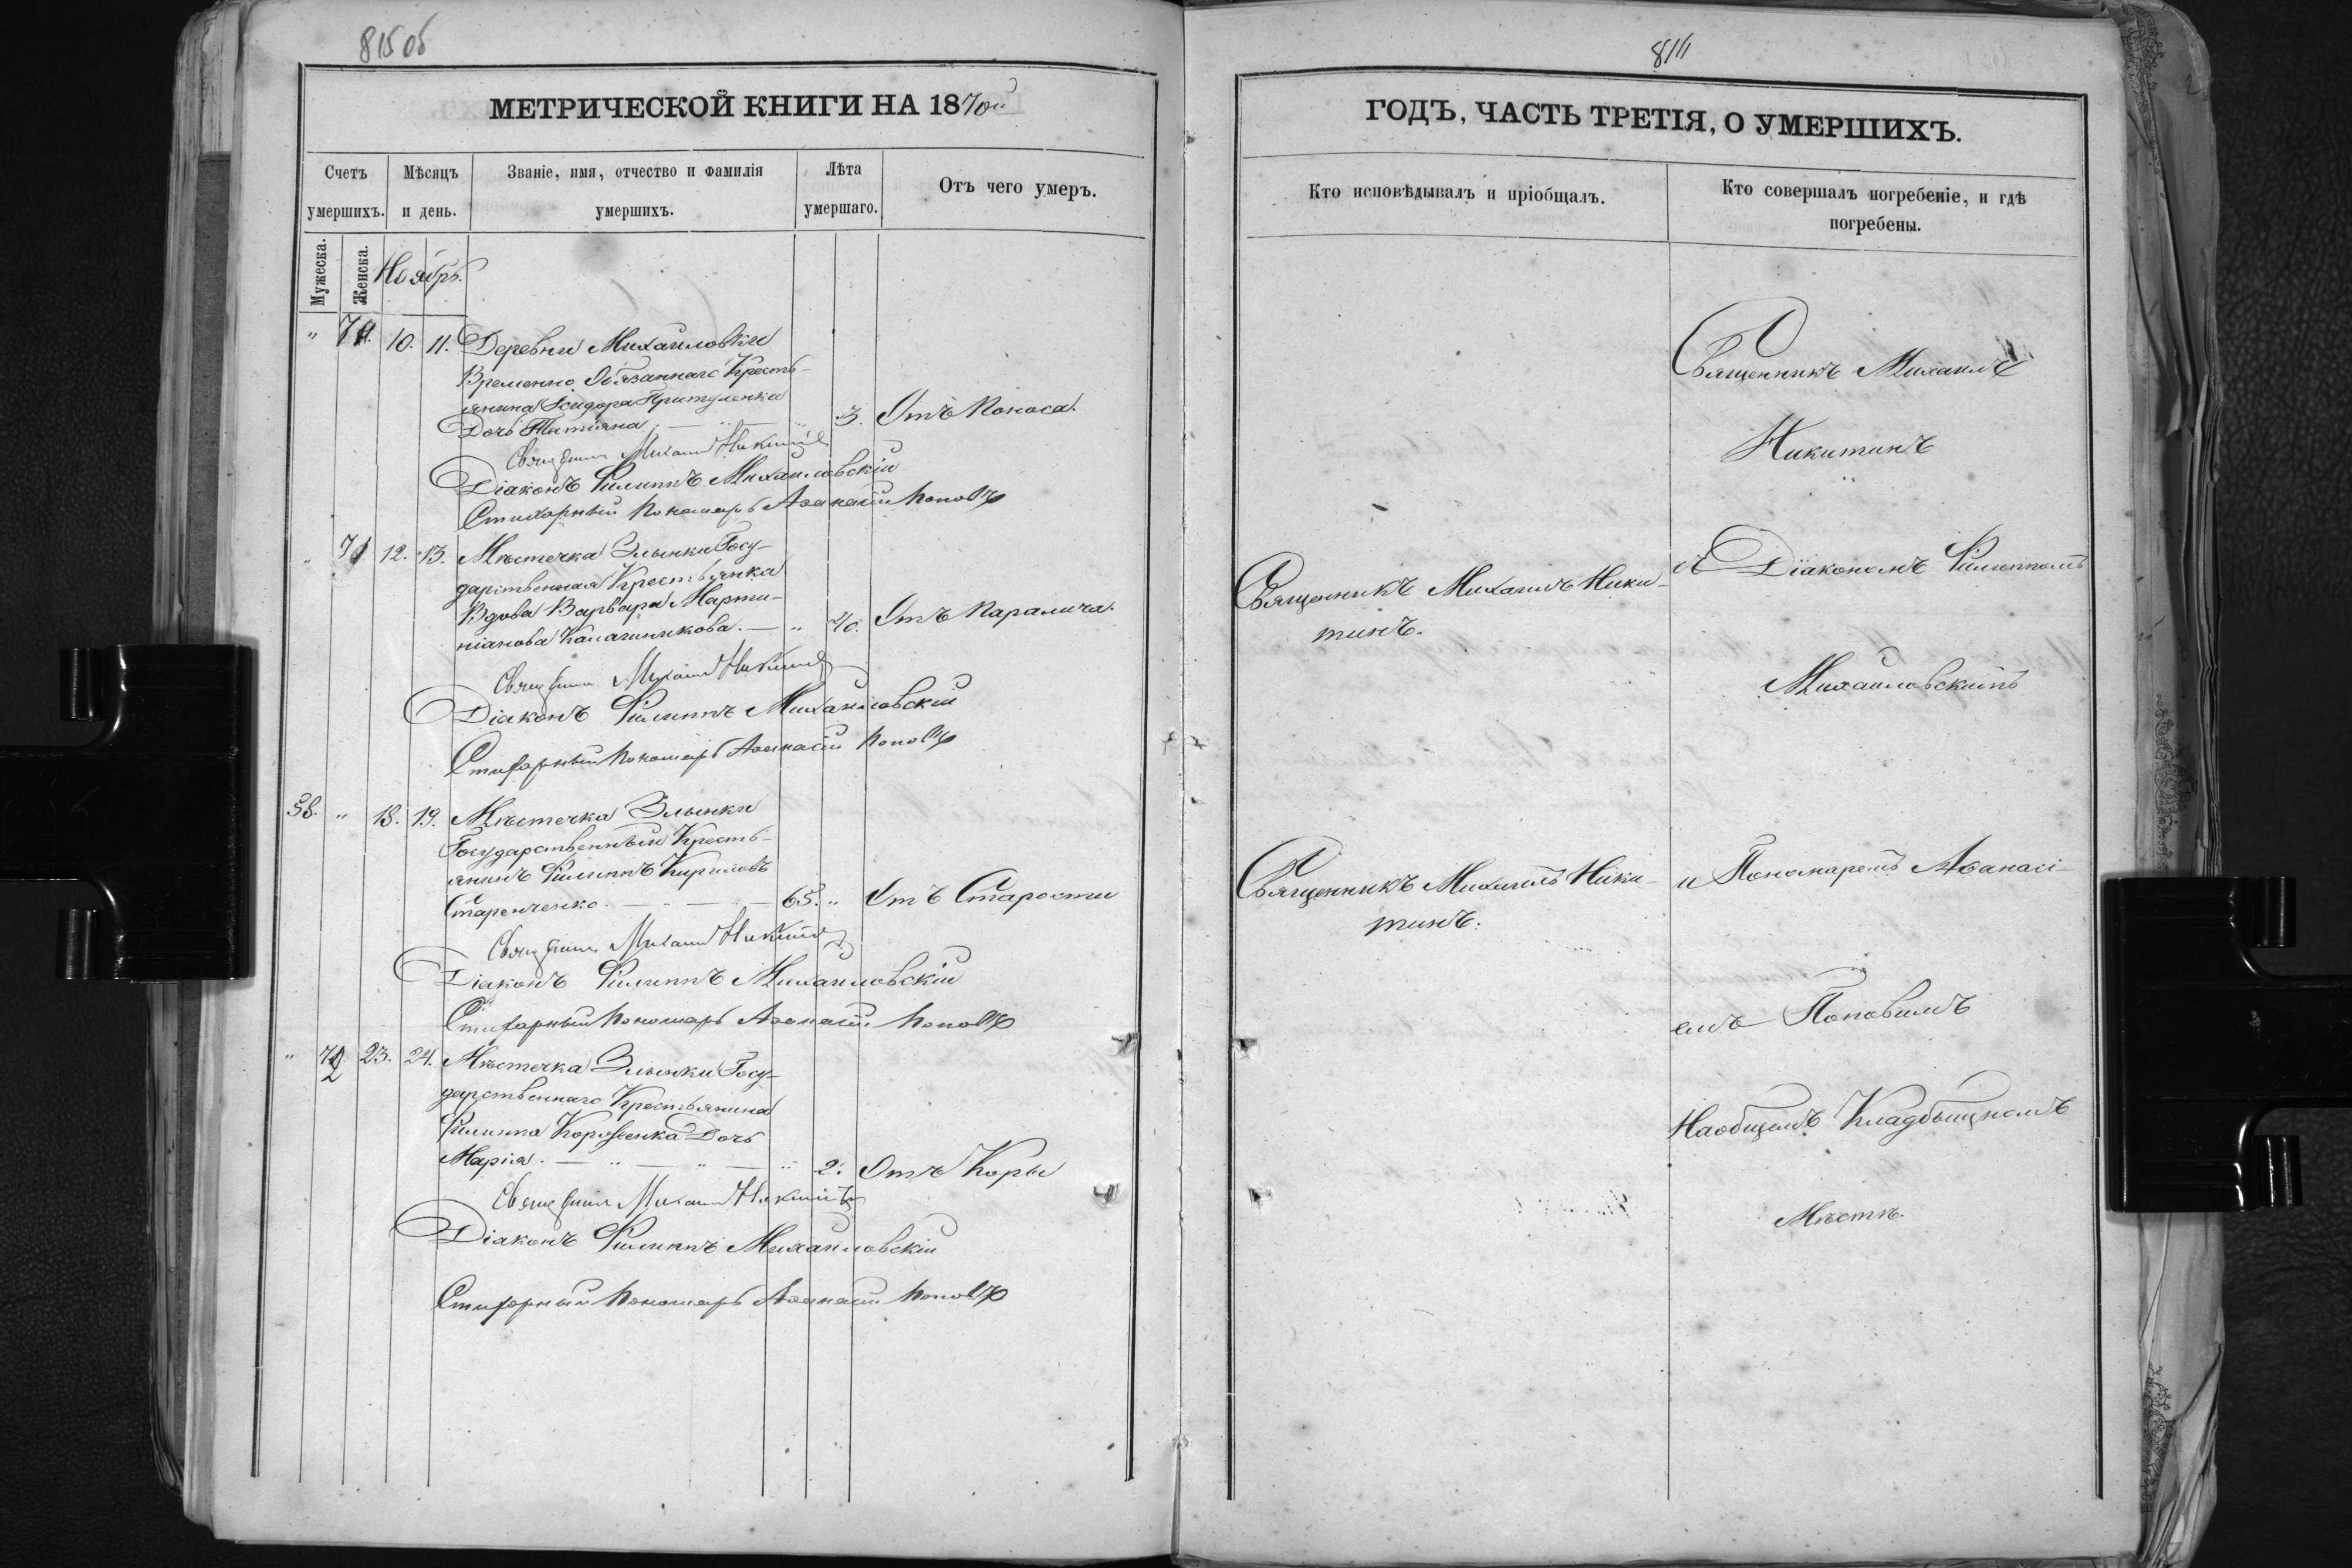 815об
МЕТРИЧЕСКОЙ КНИГИ НА 1870й
Счетъ
умершихъ.
Мѣсяцъ
и день.
Званіе, имя, отчество и фамилія
умершихъ.
Лѣта
умершаго.
Отъ чего умеръ.
Мужеска.
Женска.
Ноябрь.
" 10. 11. Деревни Михайловки
Временно Обязаннаго Кресть-
янина Исидора Притуленка
Дочь Татіана 3. Отъ Поноса.
Священникъ Михаилъ Никитинъ
Діаконъ Филиппъ Михайловскій
Стихарный Пономарь Аѳанасій Поповъ
" 71 12. 13. Мѣстечка Злынки Госу-
дарственная Крестьянка
Вдова Варвара Марти-
ніанова Калашникова. — " 70. Отъ Паралича.
Священникъ Михаилъ Никитинъ
Діаконъ Филиппъ Михайловскій
Стихарный Пономарь Аѳанасій Поповъ
58. " 18. 19. Мѣстечка Злынки
Государственный Кресть-
янинъ Филиппъ Кириловъ
Старенченко. — " — 65. " Отъ Старости
Священникъ Михаилъ Никитинъ
Діаконъ Филиппъ Михайловскій
Стихарный Пономарь Аѳанасій Поповъ
" 72 23. 24. Мѣстечка Злынки Госу-
дарственнаго Крестьянина
Филиппа Дочь
Марія. — " — " — " 2. Отъ Коры
Священникъ Михаилъ Никитинъ
Діаконъ Филиппъ Михайловскій
Стихарный Пономарь Аѳанасій Поповъ
ГОДЪ, ЧАСТЬ ТРЕТІЯ, О УМЕРШИХЪ.
Кто исповѣдывалъ и пріобщалъ.
Кто совершалъ погребеніе, и гдѣ
погребены.
Священникъ Михаилъ Ники-
тинъ.
Священникъ Михаилъ Ники-
тинъ.
Священникъ Михаилъ
Никитинъ
съ Діакономъ Филиппомъ
Михайловскимъ
и Пономаремъ Аѳанасі-
емъ Поповымъ
На общемъ Кладбищномъ
Мѣстѣ.